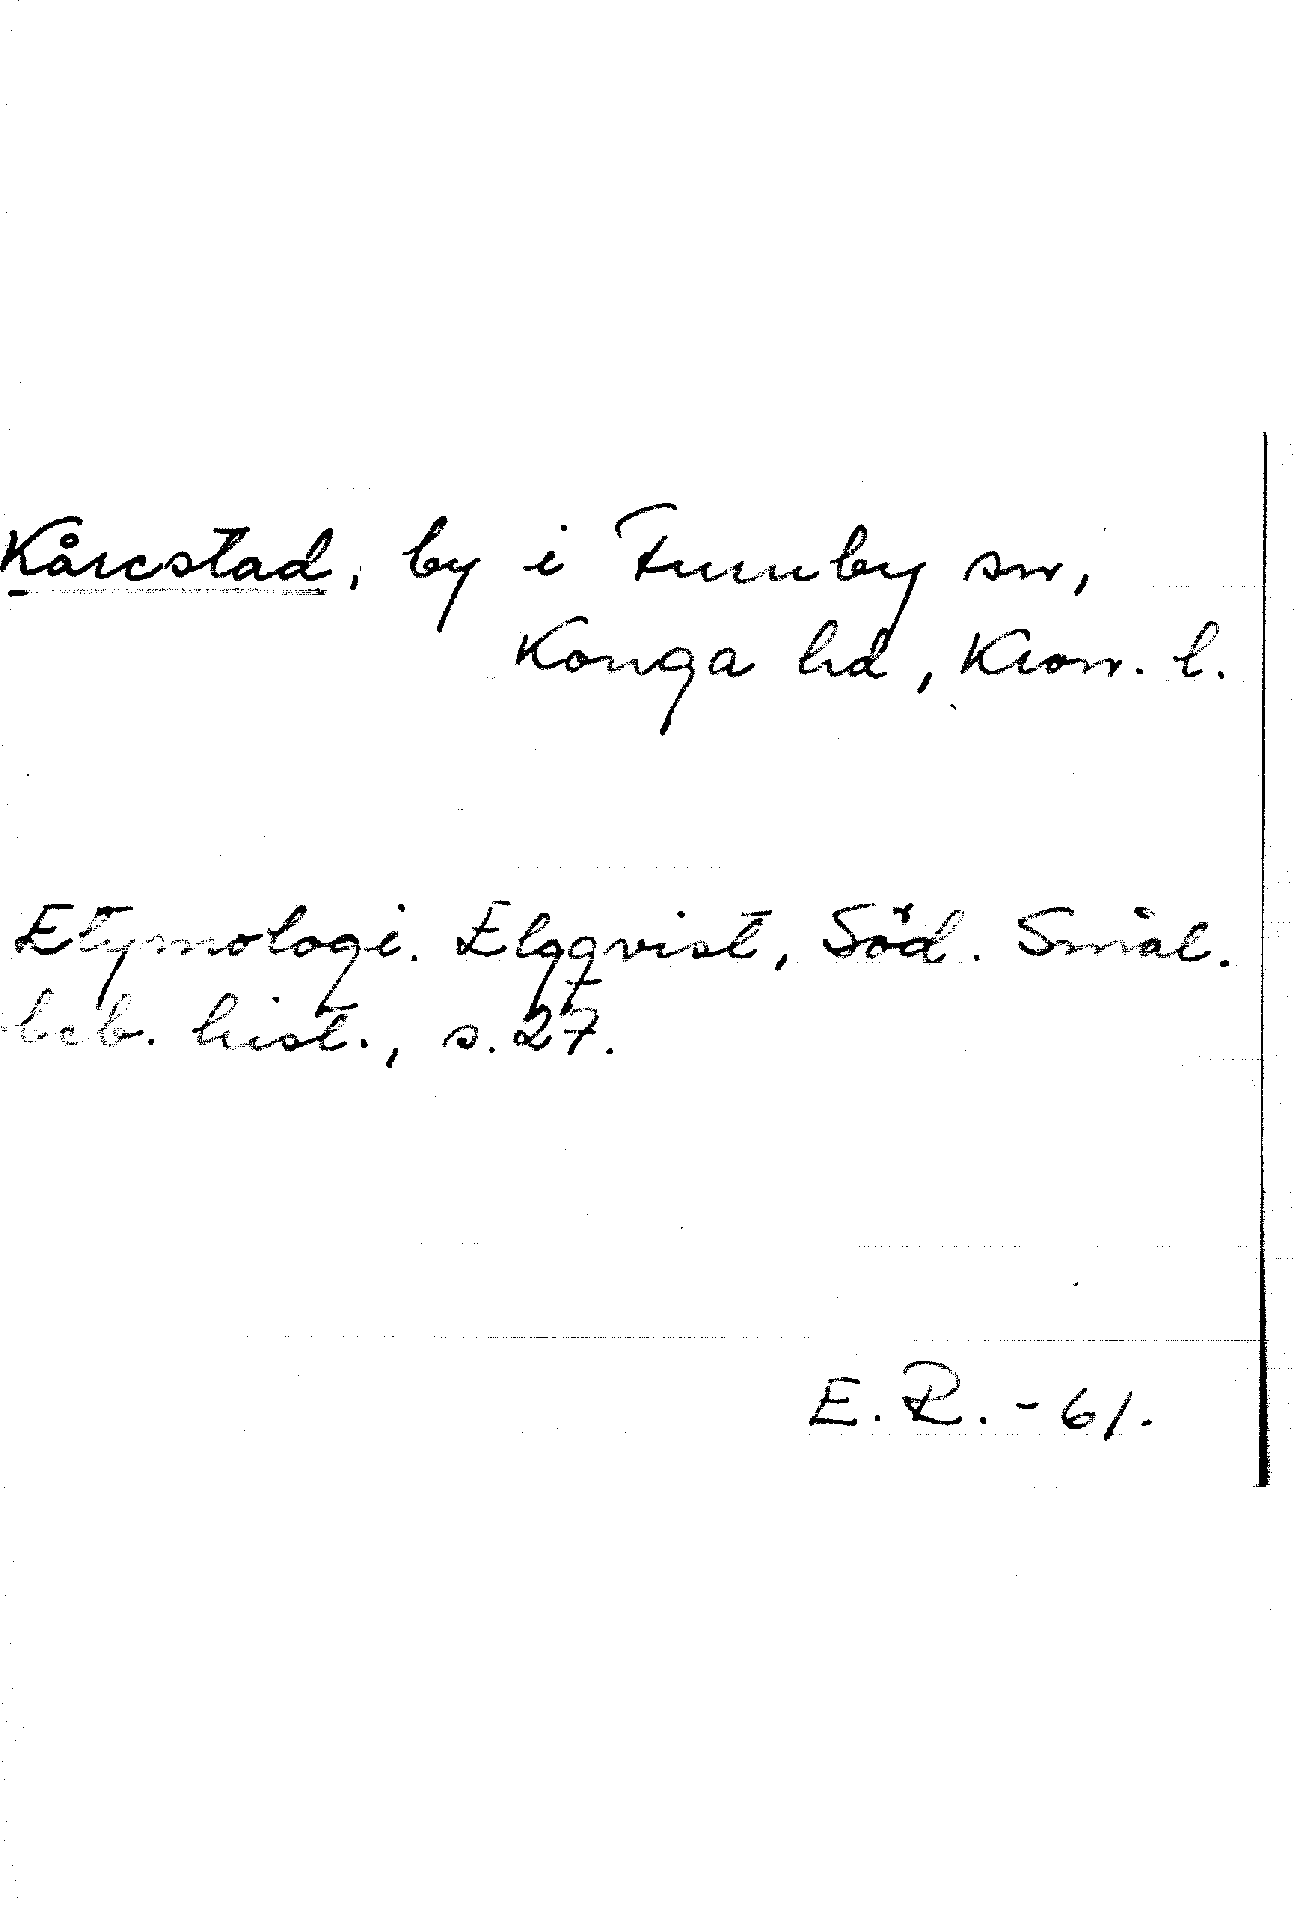 Kårestad, by i Furuby sn,
Konga hd, Kron. l.
Etymologi. Elgqvist, Söd. Smål.
beb. hist., s. 27.
E. R. - 61.